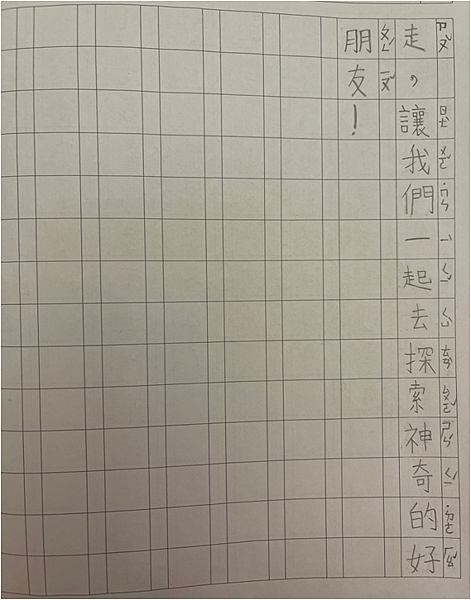 走，讓我們一起去探索神奇的好
朋友！